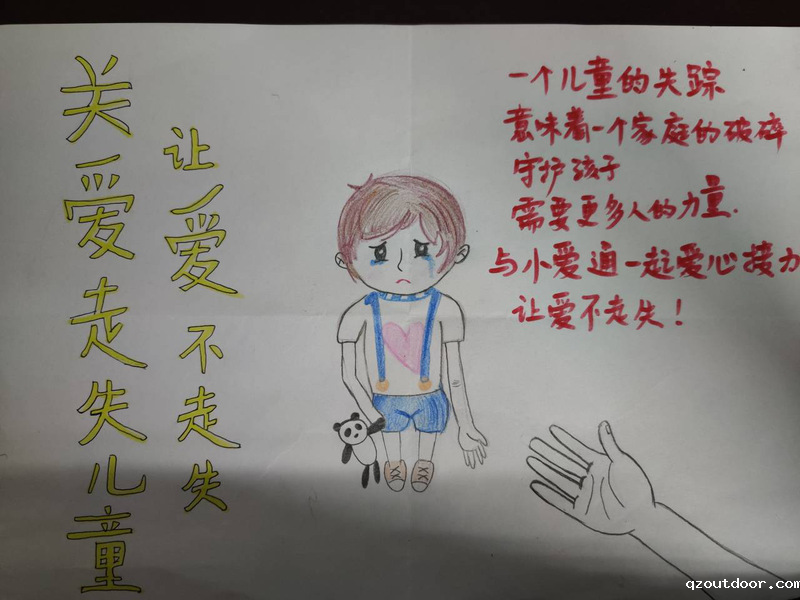 关爱走失儿童
让爱不走失
一个儿童的失踪
意味着一个家庭的破碎
守护孩子
需要更多人的力量.
与小爱通一起爱心接力
让爱不走失！
qzoutdoor.com